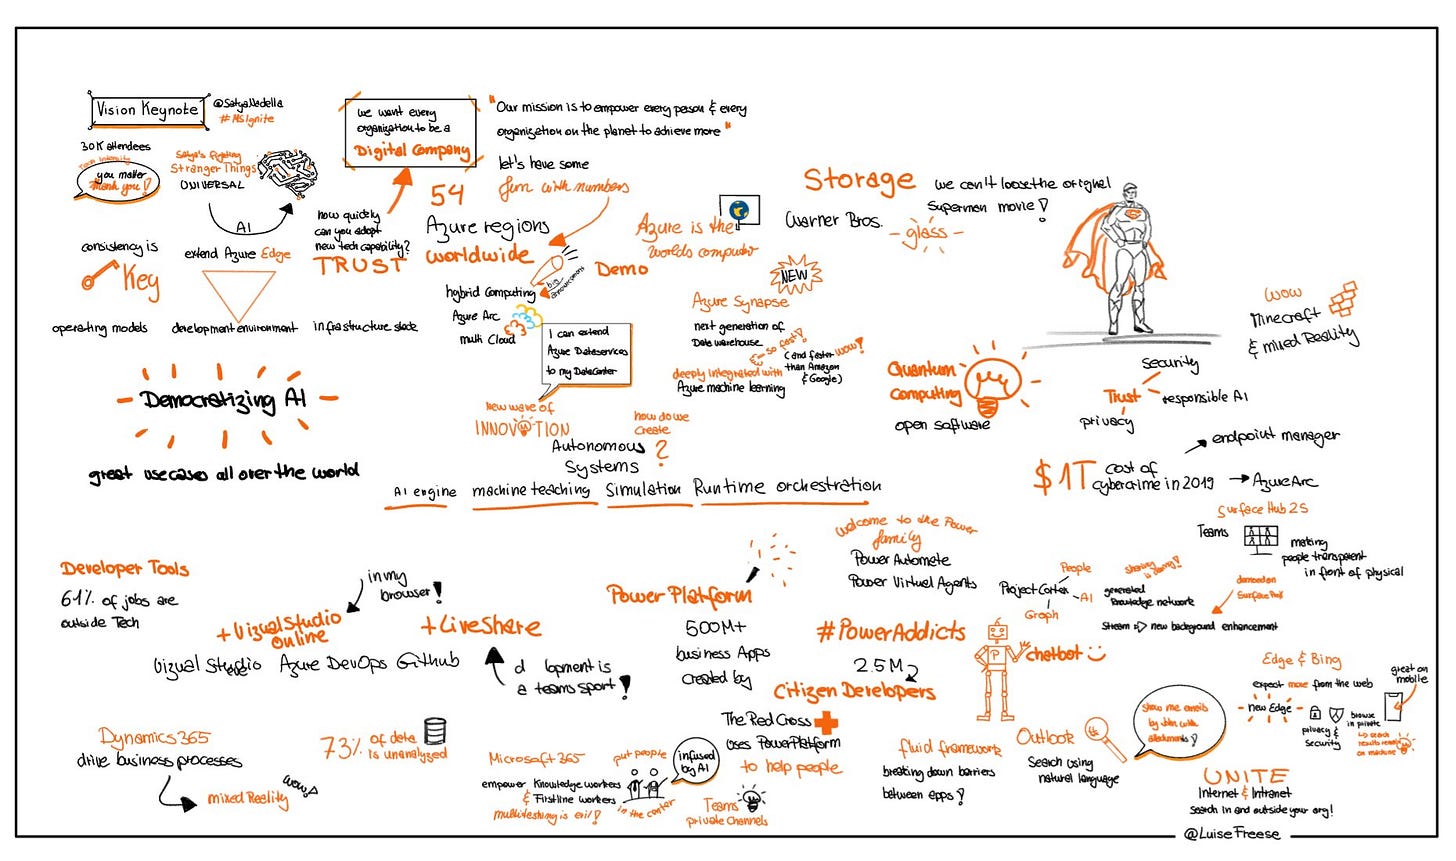 Vision Keynote
@SatyaNadella
#MSIgnite
30K attendees
Tech Intensity
you matter
thank you!
Satya's fighting
Stranger Things
UNIVERSAL
AI
consistency is
Key
extend Azure Edge
operating models
development environment
infrastructure stack
we want every
organization to be a
Digital Company
how quickly
can you adopt
new tech capability?
TRUST
"Our mission is to empower every person & every
organization on the planet to achieve more"
let's have some
fun with numbers
54
Azure regions
worldwide
hybrid Computing
Azure Arc
multi Cloud
big
announcement
Demo
I can extend
Azure Dataservices
to my DataCenter
Azure is the
worlds computer
NEW
Azure Synapse
next generation of
Data warehouse
so fast!
(and faster
than Amazon
& Google)
wow!
deeply integrated with
Azure machine learning
Storage
we can't loose the original
Superman movie!
Warner Bros.
glass
Quantum
Computing
open software
WOW
Minecraft
& mixed Reality
Trust
security
responsible AI
privacy
Democratizing AI
great usecases all over the world
new wave of
INNOVATION
how do we
create
?
Autonomous
Systems
AI engine machine teaching Simulation Runtime orchestration
$1T
cost of
cybercrime in 2019
endpoint manager
Azure Arc
Surface Hub 2S
Teams
making
people transparent
in front of physical
Developer Tools
61% of jobs are
outside Tech
in my
browser!
+ Vizual Studio
online
+ LiveShare
Vizual Studio Azure DevOps Github
d lopment is
a teams sport!
Power Platform
500M+
business Apps
created by
welcome to the Power
family
Power Automate
Power Virtual Agents
#PowerAddicts
2.5M
Citizen Developers
P
chatbot
The Red Cross
uses PowerPlatform
to help people
Project Cortex
People
AI
Graph
sharing is caring!
generated
Knowledge network
demoed on
Stream
new background enhancement
Dynamics 365
drive business processes
mixed Reality
wow!
73% of data
is unanalyzed
Microsoft 365
empower Knowledge workers
& Firstline workers
multitasking is evil!
put people
in the center
infused
by AI
Teams
private Channels
fluid framework
breaking down barriers
between apps!
Outlook
Search using
natural language
show me emails
by John with
attachments!
Edge & Bing
expect more from the web
new Edge
privacy &
security
browse
in private
search
results
on machine
great on
mobile
UNITE
Internet & Intranet
search in and outside your org!
@LuiseFreese